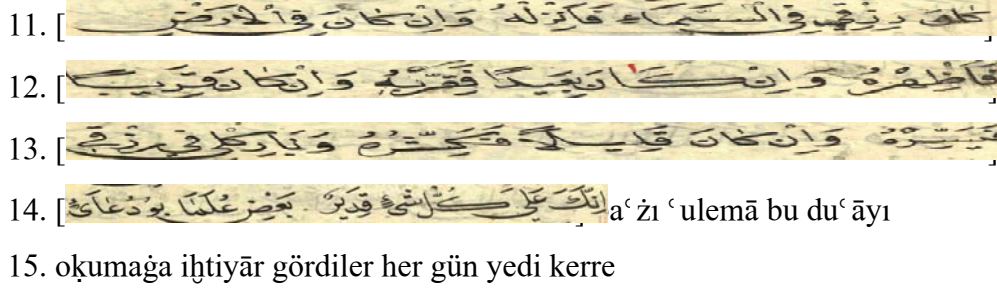 11. [كان رزقى فى السماء فانزله وان كان فى الارض]
12. [فاظهره وان كان بعيدا فقربه وان كان قريبا]
13. [فيسره وان كان قليلا فكثره وبارك لى فى رزقى]
14. [انك على كل شئ قدير بعض علما بو دعائ] aʿżı ʿulemā bu duʿāyı
15. oḳumaġa iḫtiyār gördiler her gün yedi kerre